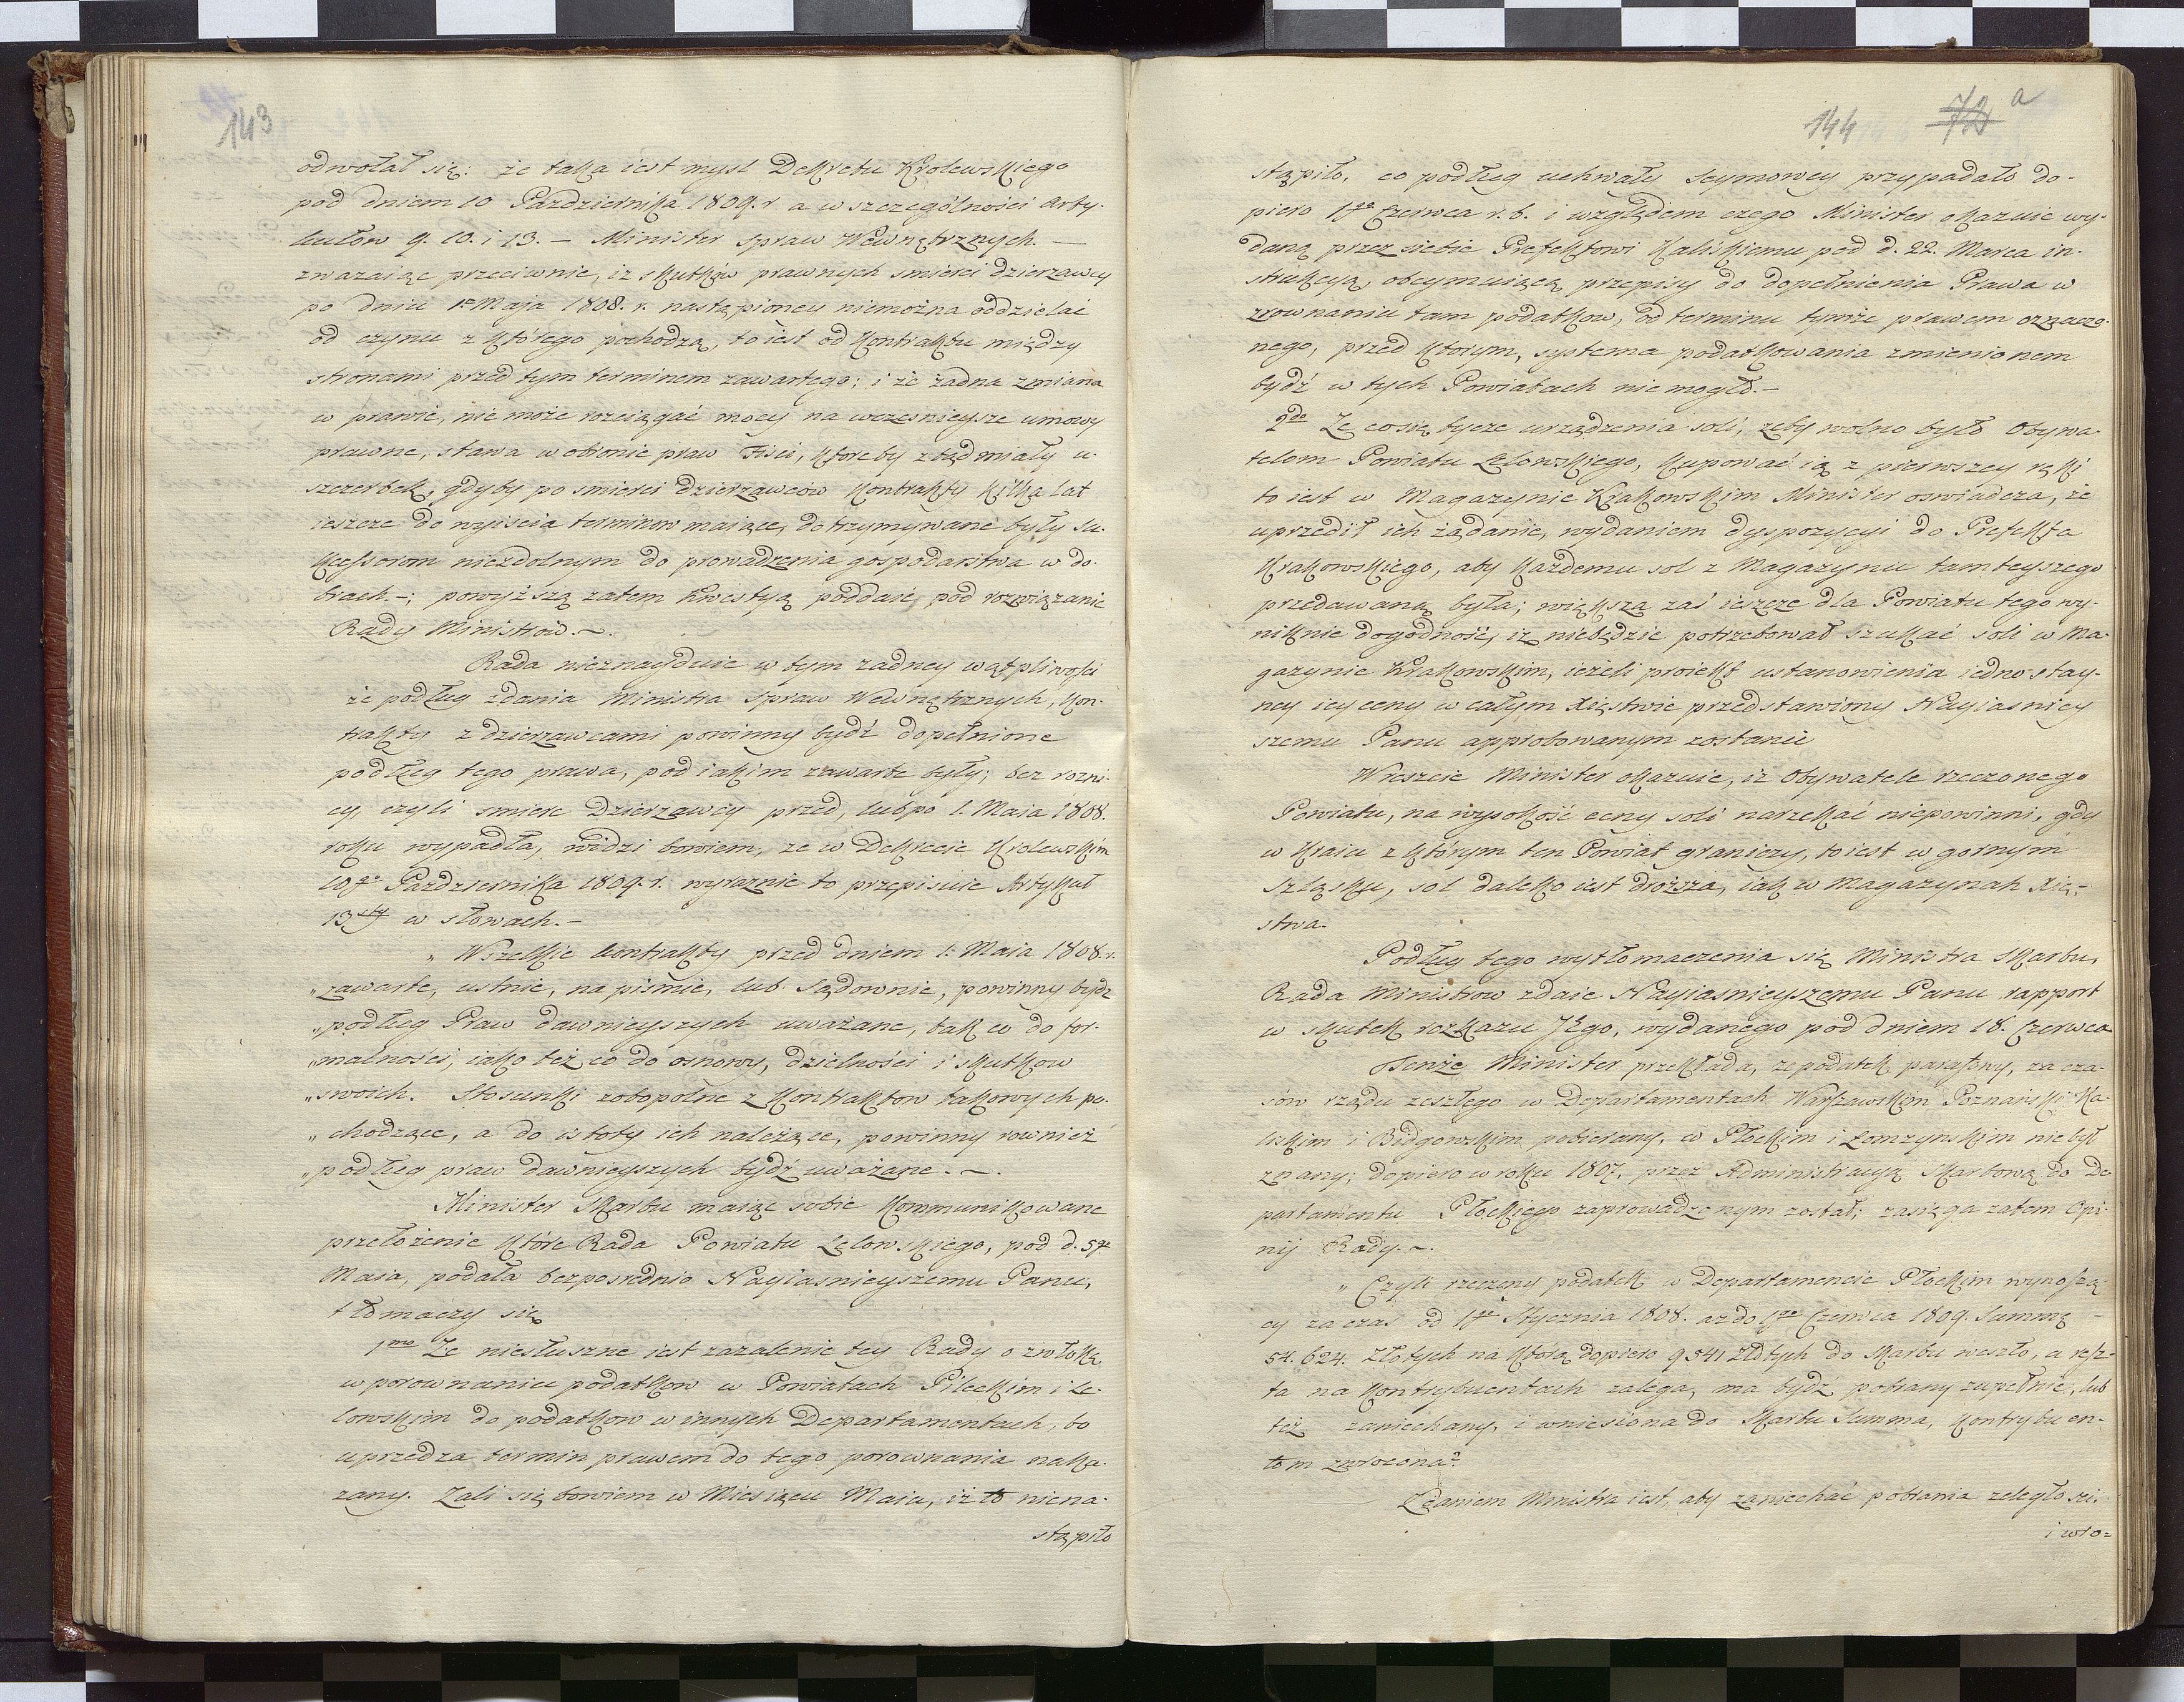 143
odwołał się: że taka iest mysl Dekretu Krolewskiego
pod dniem 10 Pazdziernika 1809. r a w szczególności Arty-
kułow 9. 10. i 13. — Minister Spraw Wewnętrznych. —
zwazaiąc przeciwnie, iz skutków prawnych smierci dzierzawcy
po dniu 1o Maja 1808. r. nastąpioney niemożna oddzielać
od czynu z którego pochodzą, to iest od kontraktu między
stronami przed tym terminem zawartego; i że żadna zmiana
w prawie, nie może rozciągać mocy na wczesnieysze umowy
prawne, stawa w obronie praw Fisci, ktore by ztąd miały u-
szczerbek, gdyby po smierci dzierzawców kontrakty kilka lat
ieszcze do wyiscia terminow maiące, dotrzymywane były Su-
kcessorom niezdolnym do prowadzenia gospodarstwa w do-
brach. -; powyższą zatem kwestyą poddaie pod rozwiązanie
Rady Ministrów. ~.
Rada nieznayduie w tym zadney wątpliwości
że podług zdania Ministra Spraw Wewnętrznych, kon-
trakty z dzierzawcami powinny bydź dopełnione
podług tego prawa, pod iakim zawarte były; bez rozni-
cy, czyli smierc Dzierzawcy przed, lub po 1. Maia 1808.
roku wypadła, widzi bowiem, ze w Dekrecie Krolewskim
10go Pazdziernika 1809. r. wyraznie to przepisuie Artykuł
13sty w słowach. -
„ Wszelkie kontrakty przed dniem 1. Maia 1808. r.
„zawarte, ustnie, na piśmie, lub Sądownie, powinny bydz
„podług Praw dawnieyszych uważane, tak co do for-
„malności, iako też co do osnowy, dzielności i skutkow
„swoich. Stosunki zobopólne z kontraktow takowych po-
„chodzące, a do istoty ich należące, powinny rownież
„podług praw dawnieyszych bydź uważane. ~.
Minister Skarbu maiąc sobie kommunikowane
przełożenie które Rada Powiatu Lelowskiego, pod d. 5go
Maia, podała bezposrednio Nayiasnieyszemu Panu,
tłomaczy się
1mo Ze niesłuszne iest zazalenie tey Rady o zwłokę
w porownaniu podatkow w Powiatach Pileckim i Le-
lowskim do podatkow w innych Departamentach, bo
uprzedza termin prawem do tego porownania naka-
zany. Zali się bowiem w Miesiącu Maiu, iż to niena-
stąpiło
144 72 a
stąpiło, co podług uchwały Seymowey przypadało do-
piero 1go Czerwca r. b. i względem czego Minister okazuie wy-
daną przez siebie Prefektowi Kaliskiemu pod d. 22. Marca in-
strukcyą, obeymuiącą przepisy do dopełnienia Prawa w
zrownaniu tam podatkow, od terminu tymże prawem oznaczo-
nego, przed ktorym, systema podatkowania zmienionem
bydź w tych Powiatach nie mogło. —
2do Ze co się tycze urządzenia soli, zeby wolno było Obywa-
telom Powiatu Lelowskiego, kupować ią z pierwszey ręki
to iest w Magazynie Krakowskim Minister oswiadcza, że
uprzedził ich żądanie, wydaniem dyspozycyi do Prefekta
Krakowskiego, aby każdemu sol z Magazynu tamteyszego
przedawaną była; większa zaś ieszcze dla Powiatu tego wy-
niknie dogodność, iz niebędzie potrzebował szukać soli w Ma-
gazynie Krakowskim, ieżeli proiekt ustanowienia iednostay-
ney iey ceny w całym Xięstwie przedstawiony Nayiasniey
szemu Panu approbowanym zostanie
Wreszcie Minister okazuie, iz Obywatele rzeczonego
Powiatu, na wysokość ceny soli narzekać niepowinni, gdy
w kraiu z którym ten Powiat graniczy, to iest w gornym
Szląsku, sol daleko iest droższa, iak w Magazynach Xię-
stwa.
Podług tego wytłomaczenia się Ministra Skarbu,
Rada Ministrow zdaie Nayiasnieyszemu Panu rapport
w skutek rozkazu Jego, wydanego pod dniem 18. Czerwca
Tenże Minister przekłada, ze podatek parafony, za cza-
sów rządu zeszłego w Departamentach Warszawskim Poznański Ka-
liskim i Bidgowskim pobierany, w Płockim i Łomzynskim nie był
znany; dopiero w roku 1807. przez Administracyą Skarbową do De
partamentu Płockiego zaprowadzonym został; zasięga zatem Opi-
nij Rady. ~.
„ Czyli rzeczony podatek w Departamencie Płockim wynoszą-
cy za czas od 1go Stycznia 1808. az do 1go Czerwca 1809. Summę —
54. 624. Złotych na którą dopiero 9541 Złotych do Skarbu weszło, a resz-
ta na kontrybuentach zalega, ma bydź pobrany zupełnie, lub
też zaniechany, i wniesiona do Skarbu Summa, kontrybuen-
tom zwrócona?
Zdaniem Ministra iest, aby zaniechać pobrania zeległości,
i wro=